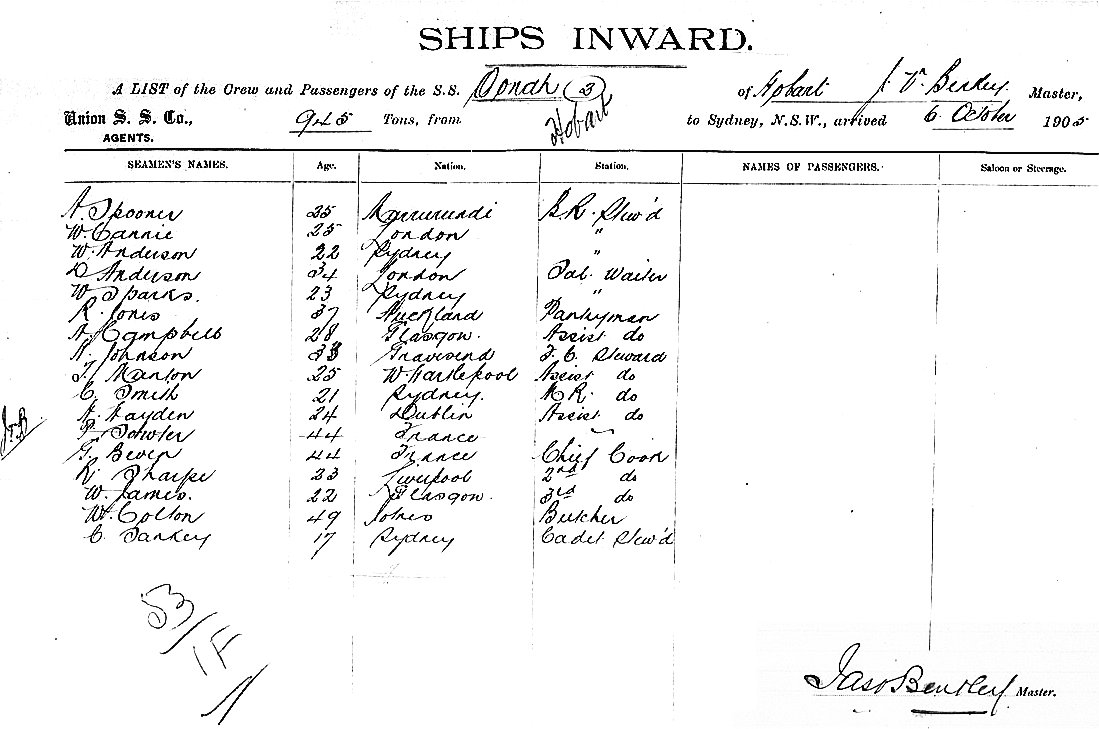 SHIPS INWARD.
A LIST of the Crew and Passengers of the S.S. Oonah (3) of Hobart J. V. Master,
Union S. S. Co., 945 Tons, from Hobart to Sydney, N.S.W., arrived 6 October 1905
AGENTS.
SEAMEN'S NAMES. Age. Nation. Station. NAMES OF PASSENGERS. Saloon or Steerage.
A. Spooner 25 Murrurundi B.R. Stew'd
W. Cannie 25 London "
W. Anderson 22 Sydney "
D Anderson 34 London Sal. Waiter
W Sparks. 23 Sydney "
R. Jones 37 Auckland Pantryman
A. Campbell 28 Glasgow. Assist do
A. Johnson 33 Gravesend F. C. Steward
T. Manton 25 W Hartlepool Assist do
C. Smith 21 Sydney. M R. do
A. Hayden 24 Dublin Assist do
F. Fowler 44 France
G. Bever 44 France Chief Cook
R. Sharpe 23 Liverpool 2nd do
W. James. 22 Glasgow. 3rd do
W. Colton 49 Totnes Butcher
C. Sankey 17 Sydney Cadet Stew'd
53/
1F
1
Jas Bentley Master.